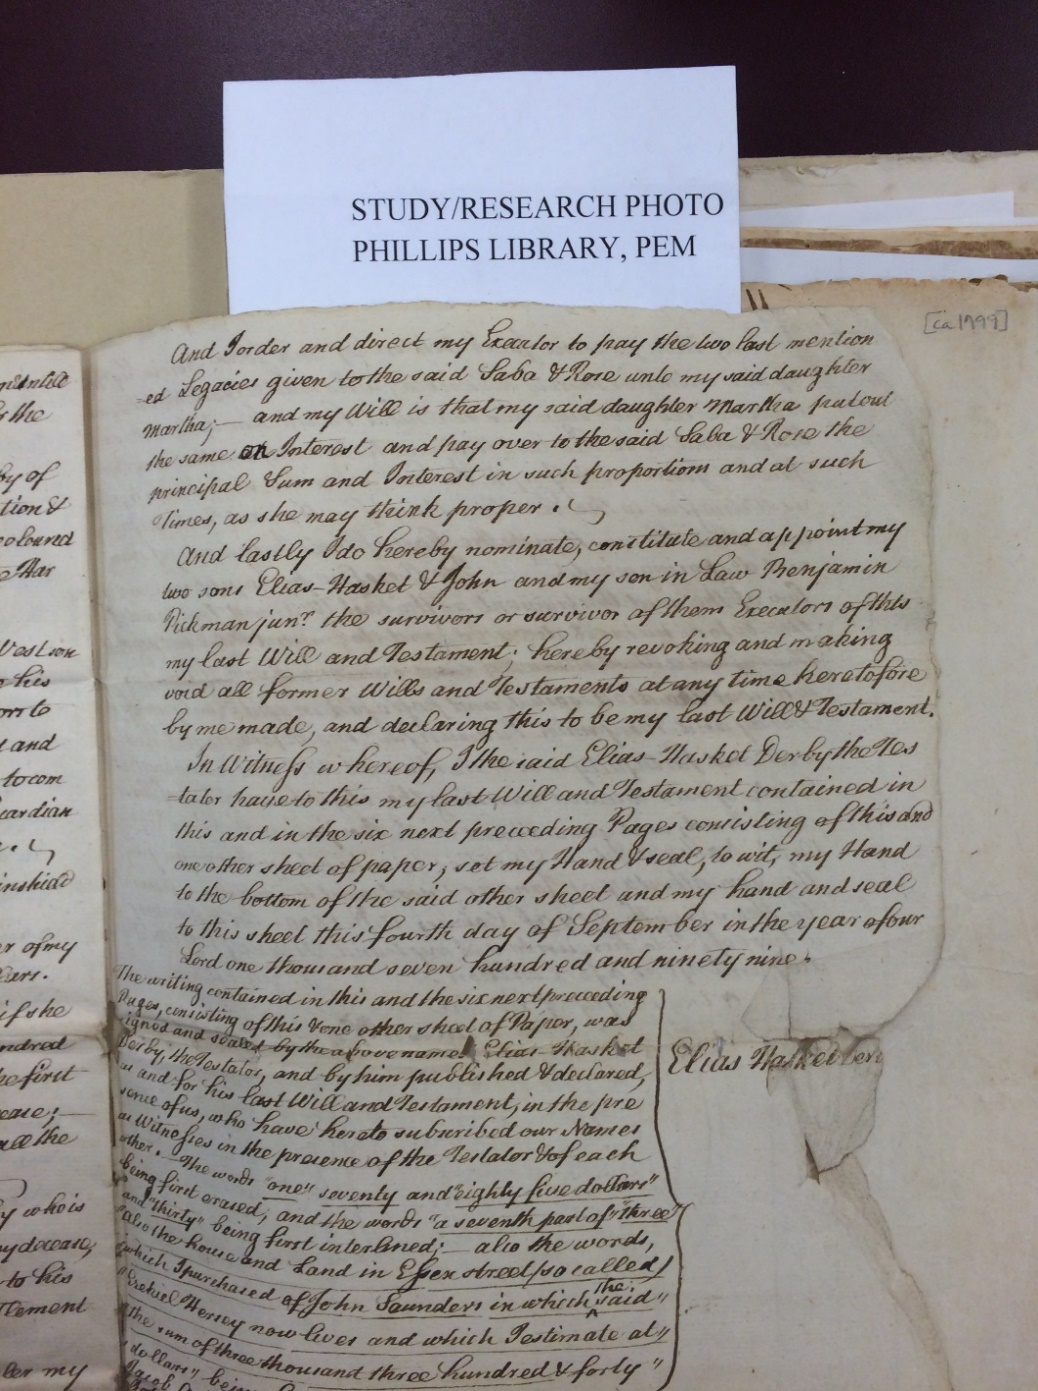 STUDY/RESEARCH PHOTO
PHILLIPS LIBRARY, PEM
[ca 1799]
And I order and direct my Executor to pay the two last mention
=ed Legacies given to the said Saba & Rose unto my said daughter
Martha; — and my Will is that my said daughter Martha put out
the same on Interest and pay over to the said Saba & Rose the
principal Sum and Interest in such proportions and at such
Times, as she may think proper.
And lastly I do hereby nominate, constitute and appoint my
two sons Elias-Hasket & John and my son in Law Benjamin
Pickman junr. the survivors or survivor of them Executors of this
my last Will and Testament; hereby revoking and making
void all former Wills and Testaments at any time heretofore
by me made, and declaring this to be my last Will & Testament.
In Witness whereof, I the said Elias-Hasket Derby the Tes
=tator have to this my last Will and Testament contained in
this and in the six next preceeding Pages consisting of this and
one other sheet of paper, set my Hand & seal, to wit, my Hand
to the bottom of the said other sheet and my hand and seal
to this sheet this fourth day of September in the year of our
Lord one thousand seven hundred and ninety nine.
The writing contained in this and the six next preceeding
Pages, consisting of this & one other sheet of Paper, was
signed and sealed by the above named Elias-Hasket
Derby, the Testator, and by him published & declared,
as and for his last Will and Testament, in the pre
sence of us, who have hereto subscribed our Names
as Witnesses in the presence of the Testator & of each
other. — The words "one" "seventy and eighty five dollars"
being first erased; and the words "a seventh part of" "three"
and "thirty" being first interlined; — also the words,
"also the house and Land in Essex street (so called)
"which I purchased of John Saunders in which the said"
"Ezekiel Hersey now lives and which I estimate at"
"the sum of three thousand three hundred & forty"
"dollars" being
Jacob
Elias Hasket Der
by of
tion &
coloured
his
and
to com
ardian
er of my
if she
ndred
he first
ease; —
all the
y who is
my decease,
to his
tlement
ter my